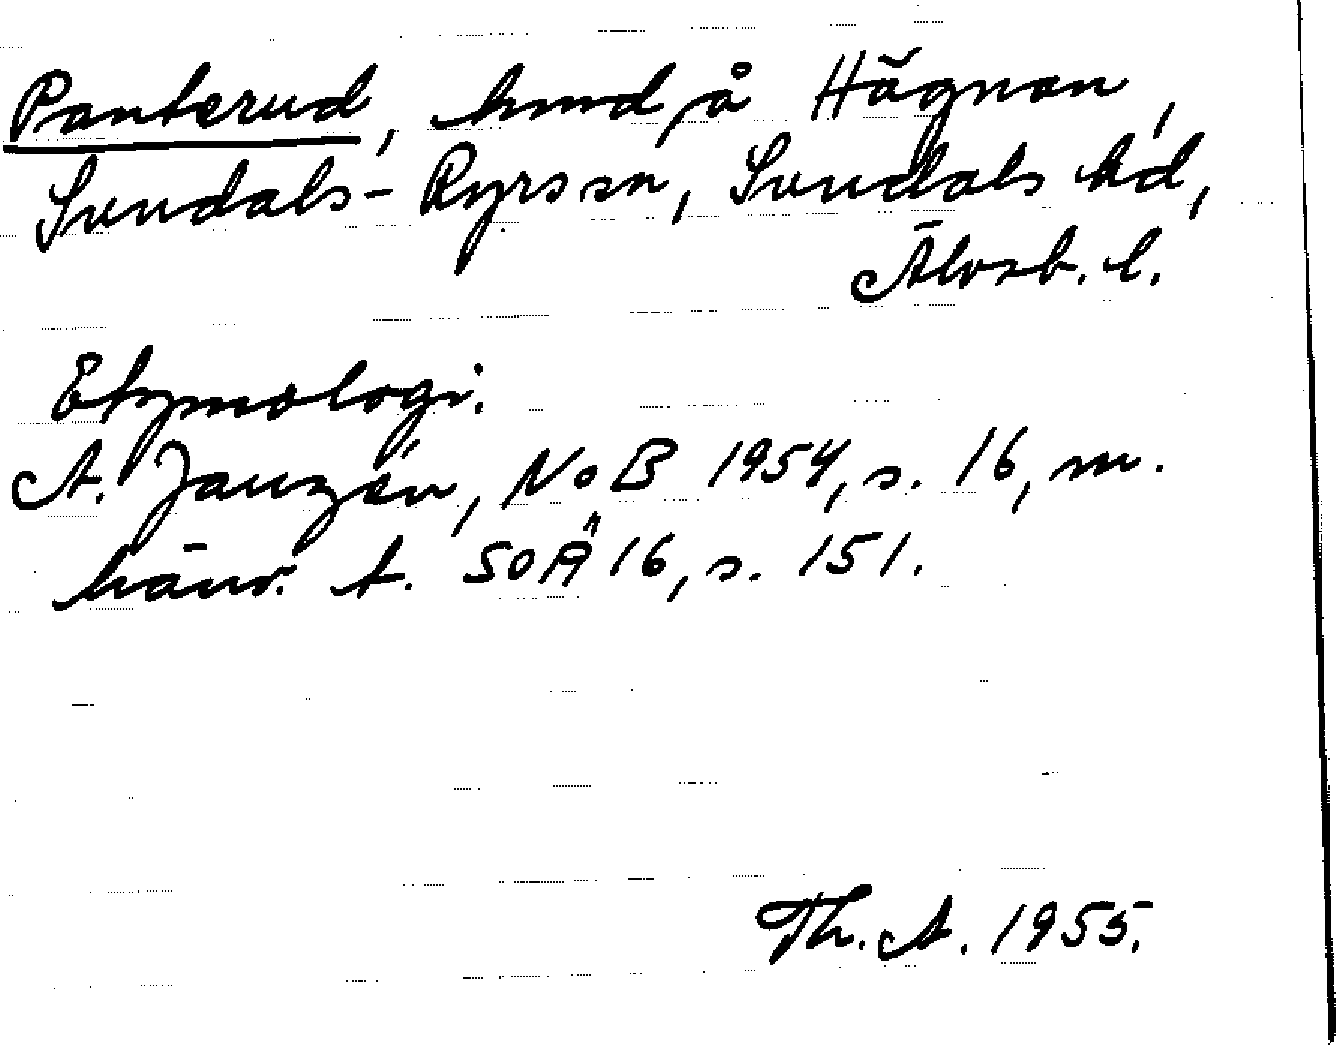 Panterud, hmd å Hägnan,
Sundals-Ryrs sn, Sundals hd,
Älvsb. l.
Etymologi:
A. Janzén, NoB 1954, s. 16, m.
hänv. t. SOÄ 16, s. 151.
Th. A. 1955.